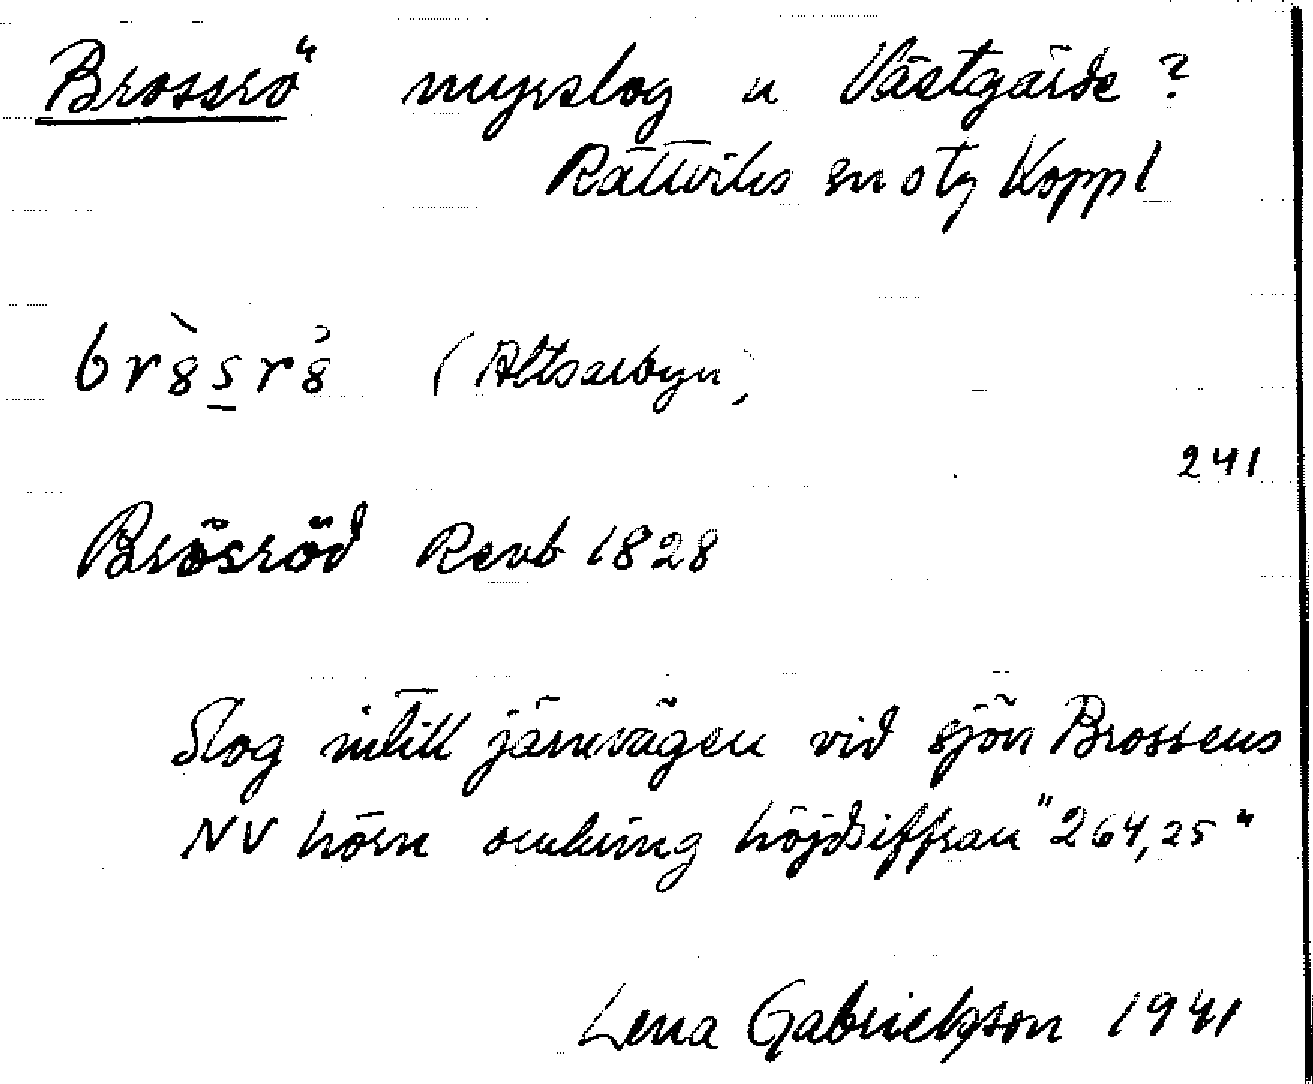 Brossrö myrslog u Västgärde ?
Rättviks sn o tg Koppl
br8̀sr8̀ (Altsarbyn)
241
Brösröd Revb 1828
Slog intill järnvägen vid sjön Brossens
NV hörn omkring höjdsiffran "264,25"
Lena Gabrielsson 1941